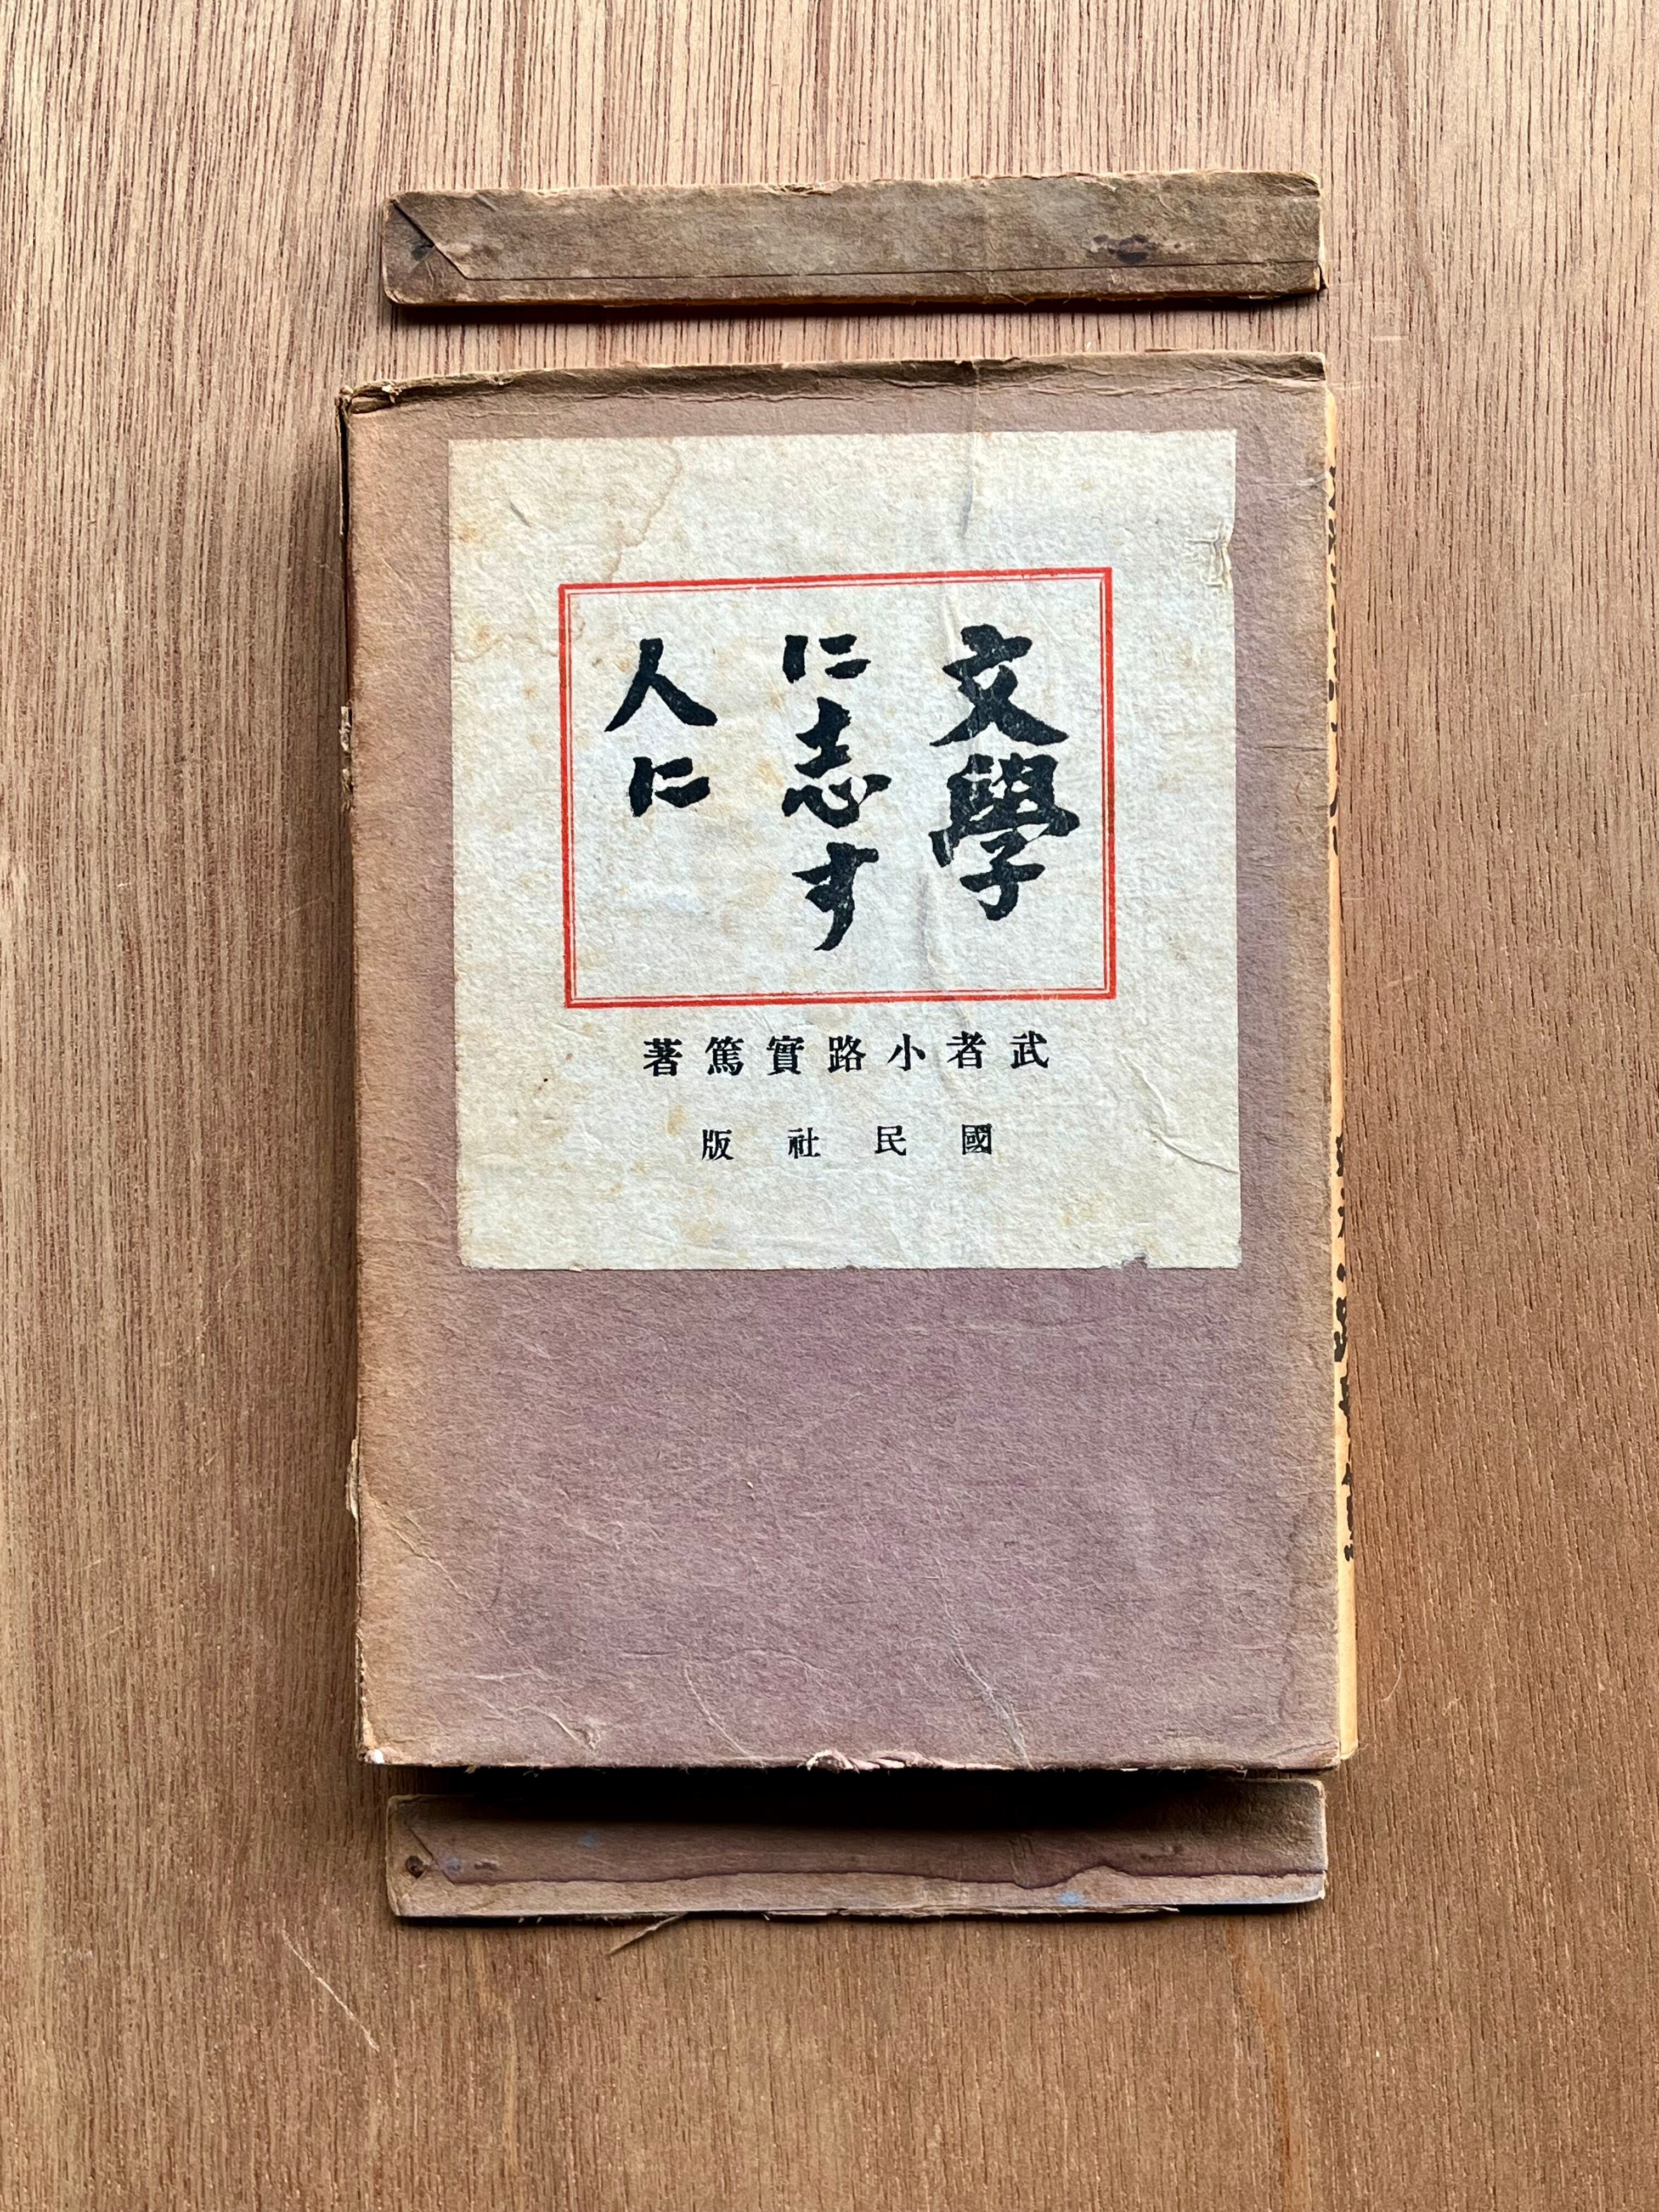 文學
に志す
人に
武者小路實篤著
國民社版